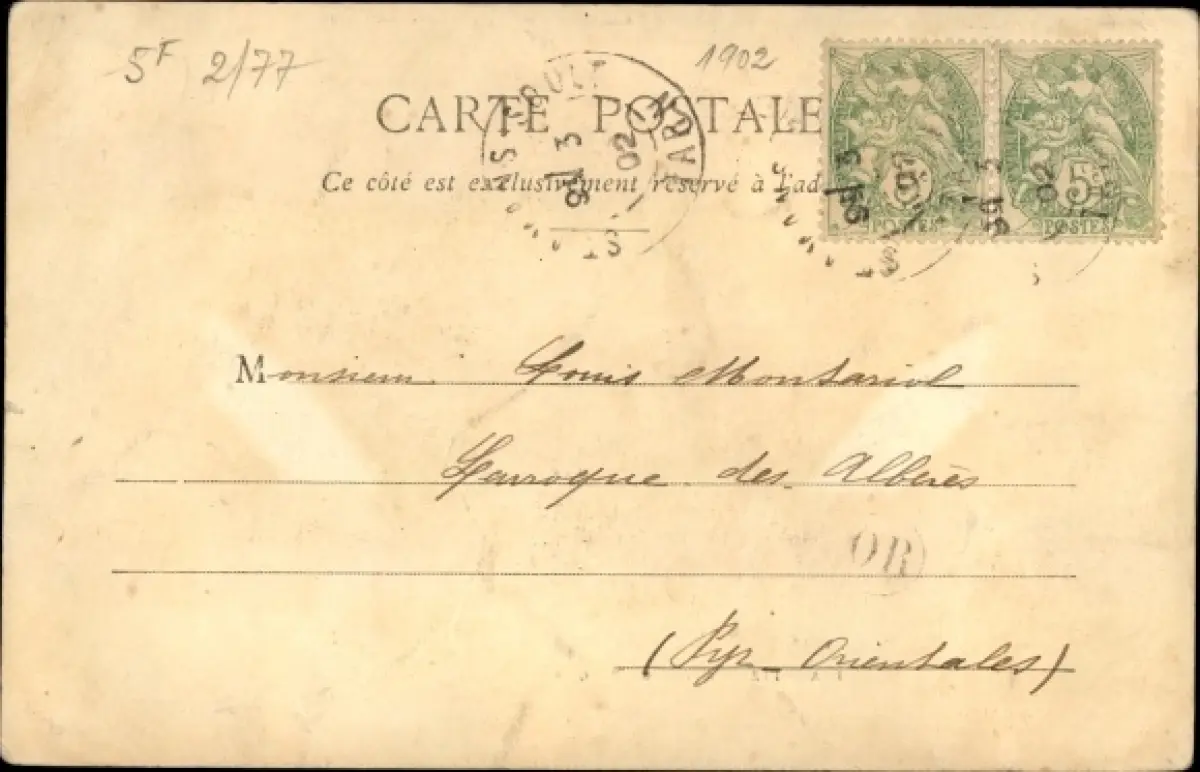 5F 2/77
1902
CARTE POSTALE
Ce côté est exclusivement réservé à l'ad
3
02
TARN
3
3
02
5c
POSTES
POSTES
Monsieur Louis Montariol
Larroque des Albères
OR
(Pyr. Orientales)